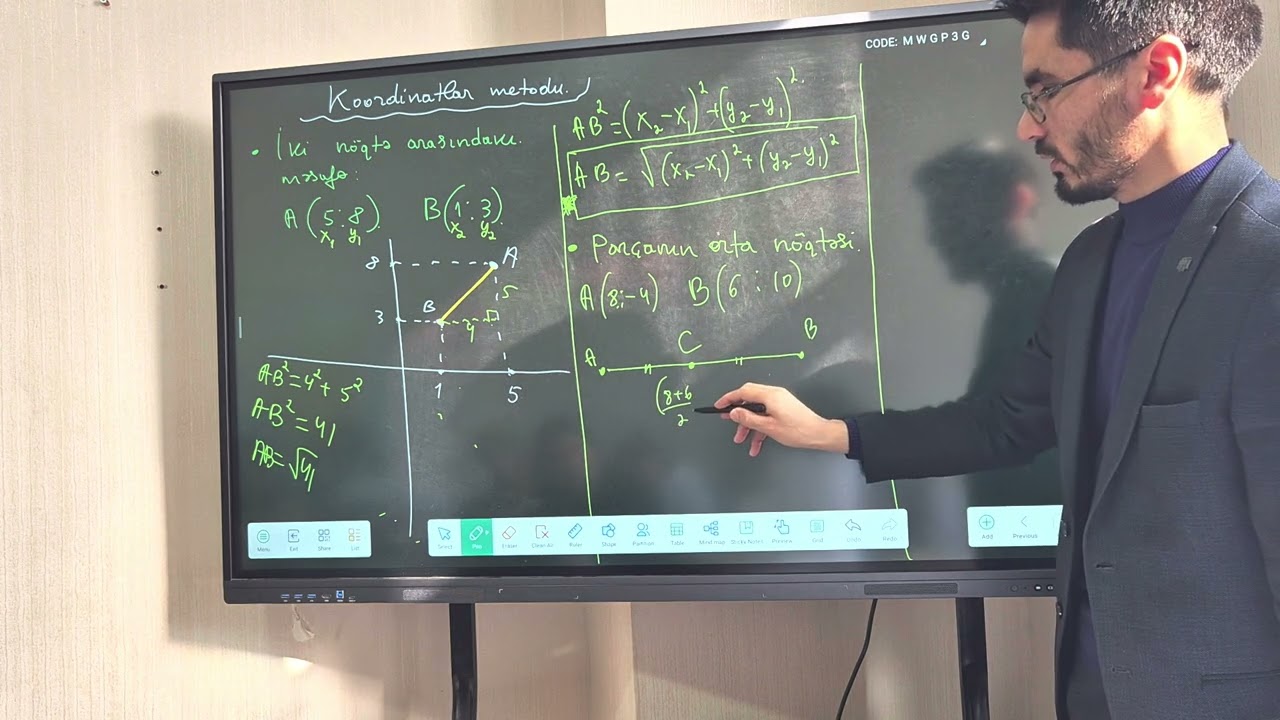 CODE: MWGP3G
Koordinatlar metodu.
• İki nöqtə arasındakı
məsafə:
A(5;8) B(1;3)
x₁ y₁ x₂ y₂
8 A
5
B
3 4
1 5
AB²=4²+5²
AB²=41
AB=√41
AB²=(x₂-x₁)²+(y₂-y₁)².
AB=√(x₂-x₁)²+(y₂-y₁)²
• Parçanın orta nöqtəsi.
A(8;-4) B(6;10)
A C B
(8+6
2
Menu Exit Share List
Select Pen Eraser Clear All Ruler Shape Partition Table Mind map Sticky Notes Preview Grid Undo Redo
Add Previous